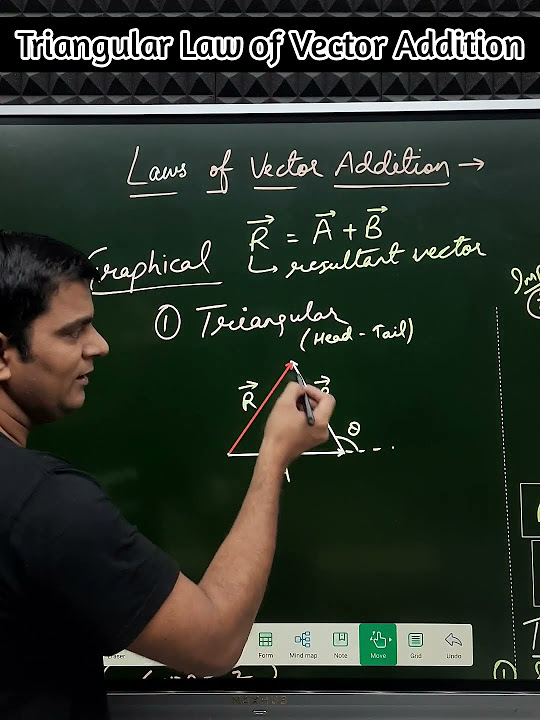 Triangular Law of Vector Addition
Laws of Vector Addition →
R⃗ = A⃗ + B⃗
Graphical
↳ resultant vector
① Triangular
(Head - Tail)
R⃗
θ
Form Mind map Note Move Grid Undo